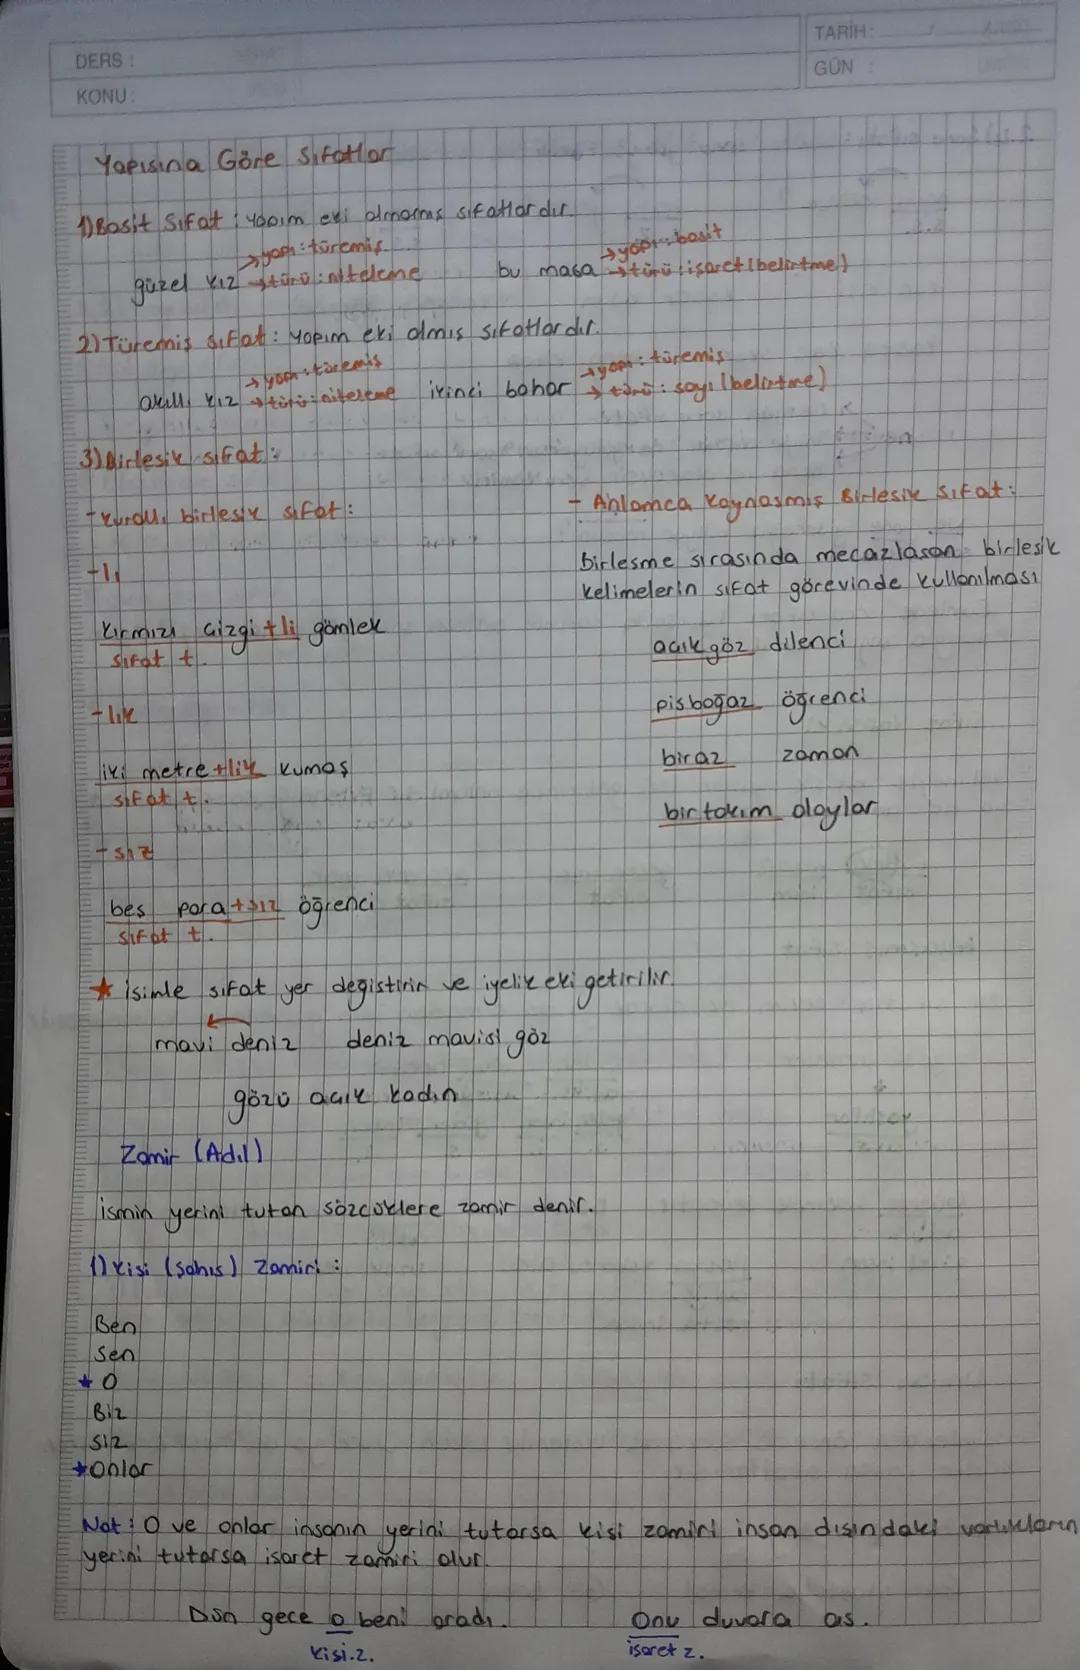 DERS :
KONU:
TARİH:
GÜN :
Yapısına Göre Sıfatlar
1) Basit Sıfat : yapım eki almamış sıfatlardır.
güzel kız → yapı : türemiş
→ türü : niteleme
bu masa → yapı : basit
→ türü : işaret (belirtme)
2) Türemiş Sıfat : yapım eki almış sıfatlardır.
akıllı kız → yapı : türemiş
→ türü : niteleme
ikinci bahar → yapı : türemiş
→ türü : sayı (belirtme)
3) Birleşik sıfat :
- kurallı birleşik sıfat :
-lı
kırmızı çizgi + li gömlek
sıfat t.
-lık
iki metre +lik kumaş
sıfat t.
-sız
beş para +sız öğrenci
sıfat t.
- Anlamca Kaynaşmış Birleşik Sıfat :
birleşme sırasında mecazlaşan birleşik
kelimelerin sıfat görevinde kullanılması
açıkgöz dilenci
pisboğaz öğrenci
biraz zaman
birtakım olaylar
★ isimle sıfat yer değiştirir ve iyelik eki getirilir.
mavi deniz deniz mavisi göz
gözü açık kadın
Zamir (Adıl)
ismin yerini tutan sözcüklere zamir denir.
1) Kişi (şahıs) Zamiri :
Ben
Sen
★ O
Biz
Siz
★ Onlar
Not : O ve onlar insanın yerini tutarsa kişi zamiri insan dışındaki varlıkların
yerini tutarsa işaret zamiri olur.
Dün gece o beni aradı. Onu duvara as.
kişi z. işaret z.